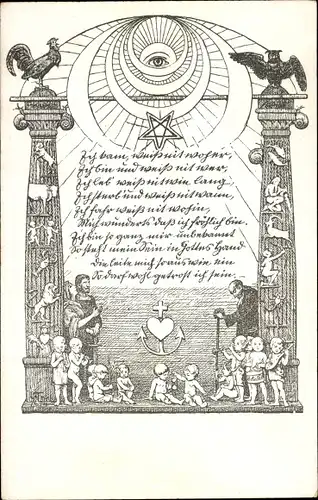 Ich kam, weiß nit woher,
Ich bin und weiß nit wer,
Ich leb weiß nit wie lang,
Ich sterb und weiß nit wann,
Ich fahr weiß nit wohin,
Mich wunderts daß ich fröhlich bin.
Ich bin so ganz mir unbekannt
So steht mein Sein in Gottes Hand
Die leite mich so aus wie ein
So darf wohl getrost ich sein.